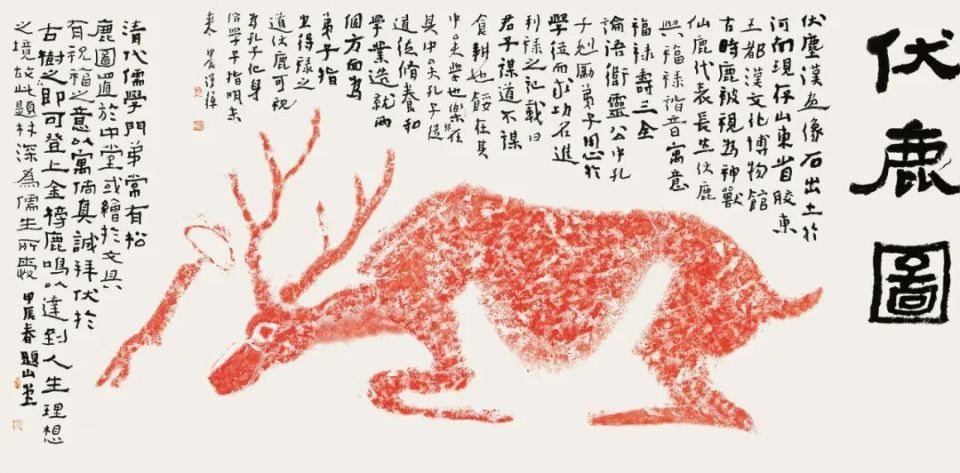 伏鹿圖
伏鹿漢畫像石出土於
河南現存山東省膠東
王都漢文化博物館
古時鹿被視為神獸
仙鹿代表長生伏鹿
與福祿諧音寓意
福祿壽三全
論語衛靈公中孔
子勉勵弟子用心於
學從而求功名進
利祿之記載曰
君子謀道不謀
食耕也餒在其
中矣學也祿在
其中矣孔子從
道德脩養和
學業造就兩
個方面為
弟子指
出得祿之
道伏鹿可視
為孔子化身
學子指明未
來 甲辰漢
清代儒學門弟常有松
鹿圖置於中堂或繪於文具
有祝福之意以寓倘真誠拜伏於
古樹之即可登上金榜鹿鳴以達到人生理想
之境故此題林深為儒生所愛 甲辰春題山堂